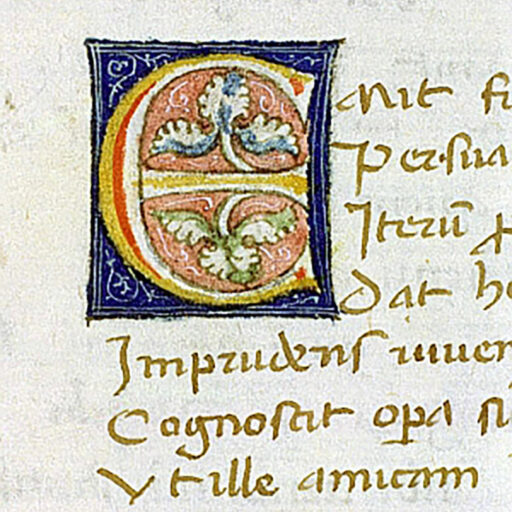 EMit fi
Persua
Iterū ꝓ
Dat he
Imprudens iuuen
Cognoscit oꝑa si
Vt ille amicam